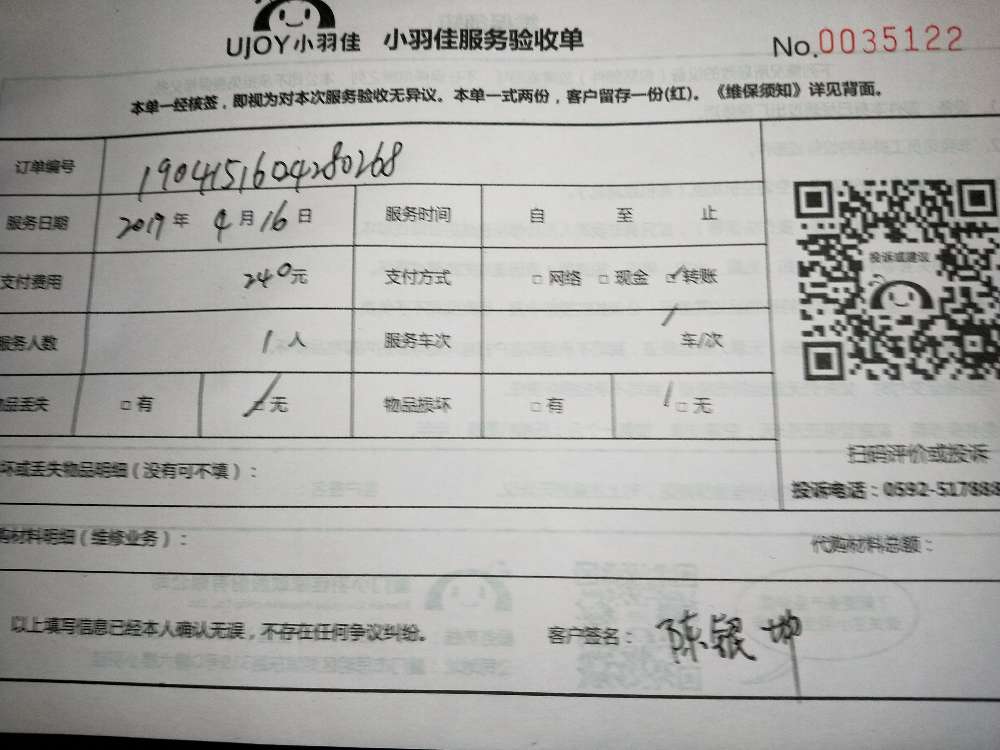 UJOY小羽佳 小羽佳服务验收单 No.0035122
本单一经核签，即视为对本次服务验收无异议。本单一式两份，客户留存一份(红)。《维保须知》详见背面。
订单编号 1904151604280268
服务日期 2019年 4月16日 服务时间 自 至 止
支付费用 240元 支付方式 □网络 □现金 □转账
服务人数 1人 服务车次 / 车/次
品丢失 □有 □无 物品损坏 □有 □无
投诉或建议
扫码评价或投诉
投诉电话：0592-517888
坏或丢失物品明细（没有可不填）：
购材料明细（维修业务）： 代购材料总额：
以上填写信息已经本人确认无误，不存在任何争议纠纷。 客户签名：陈银坤